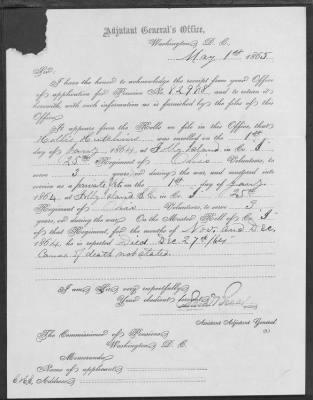 Adjutant General's Office,
Washington, D. C.
May 1st 1865
Sir:
I have the honor to acknowledge the receipt from your Office
of application for Pension No. 82988 and to return it
herewith, with such information as is furnished by the files of this
Office.
It appears from the Rolls on file in this Office, that
was enrolled on the 1st
day of Jany, 1864, at Folly Island in Co. I
25th Regiment of Ohio Volunteers, to serve
3 years, or during the war, and mustered into
service as a private on the 1st day of Jany,
1864, at Folly Island S.C. in Co. I 25th
Regiment of Ohio Volunteers, to serve 3
years, or during the war. On the Muster Roll of Co. I
of that Regiment, for the months of Nov. and Dec.
1864, he is reported Died Dec 27th/64
Cause of death not stated.
I am, Sir, very respectfully,
Your obedient servant,
Assistant Adjutant General
The Commissioner of Pensions,
Washington, D. C.
Memoranda
Name of applicant
Address